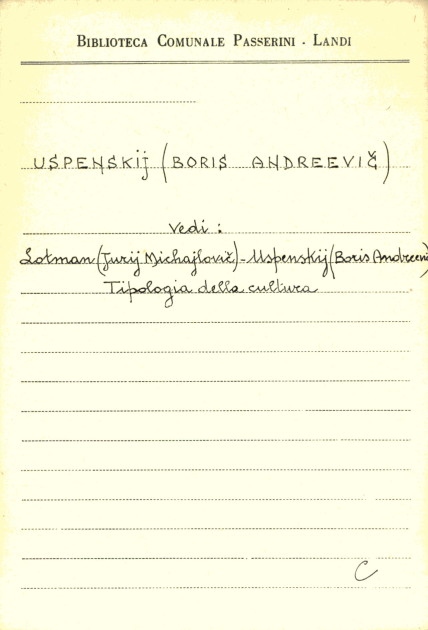 BIBLIOTECA COMUNALE PASSERINI - LANDI
USPENSKIJ (BORIS ANDREEVIČ)
Vedi:
Lotman (Jurij Michajlovič) - Uspenskij (Boris Andreevi
Tipologia della cultura
C